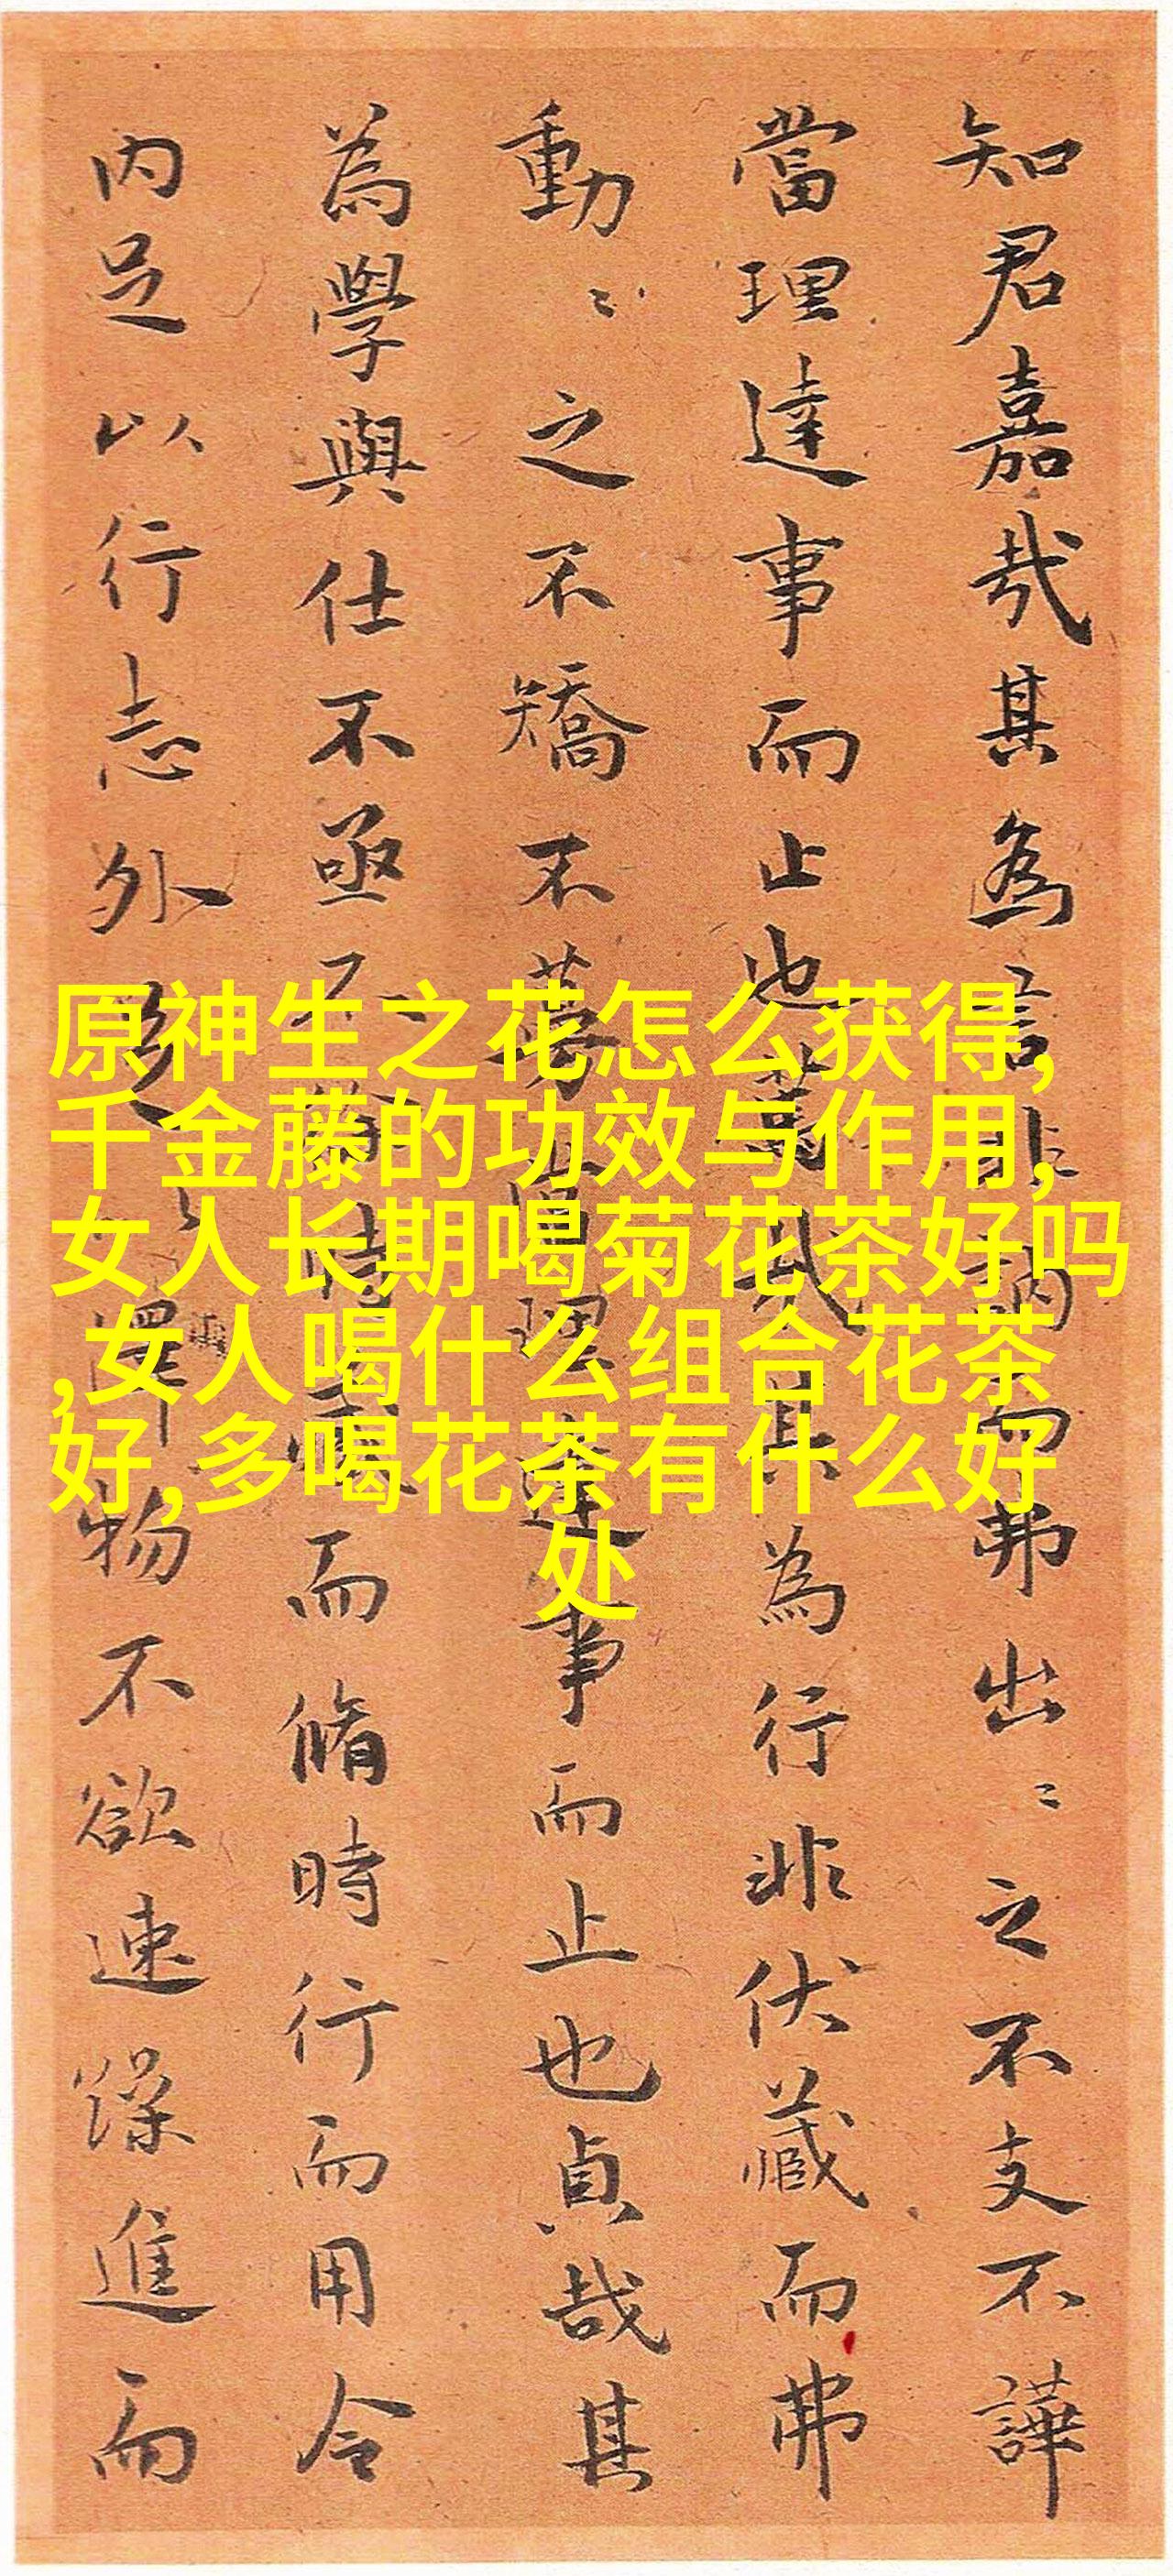 知君嘉哉其為言非訥而弗出〻之不支不譁
當理達事而止也哉其為行非伏藏而弗
動〻之不矯不當理達事而止也貞哉其
為學與仕不亟不時而脩時行而用令
内足以行志外澤物不欲速躁進而
原神生之花怎么获得,
千金藤的功效与作用,
女人长期喝菊花茶好吗
,女人喝什么组合花茶
好,多喝花茶有什么好
处